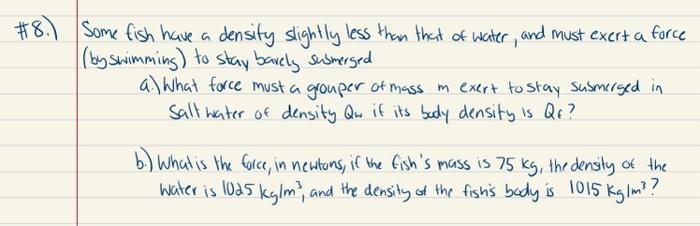 #8.) Some fish have a density slightly less than that of water, and must exert a force
(by swimming) to stay barely submerged
a.) What force must a grouper of mass m exert to stay submerged in
Salt water of density Qw if its body density is Qf?
b.) What is the force, in newtons, if the fish's mass is 75 kg, the density of the
water is 1025 kg/m³, and the density of the fish's body is 1015 kg/m³?